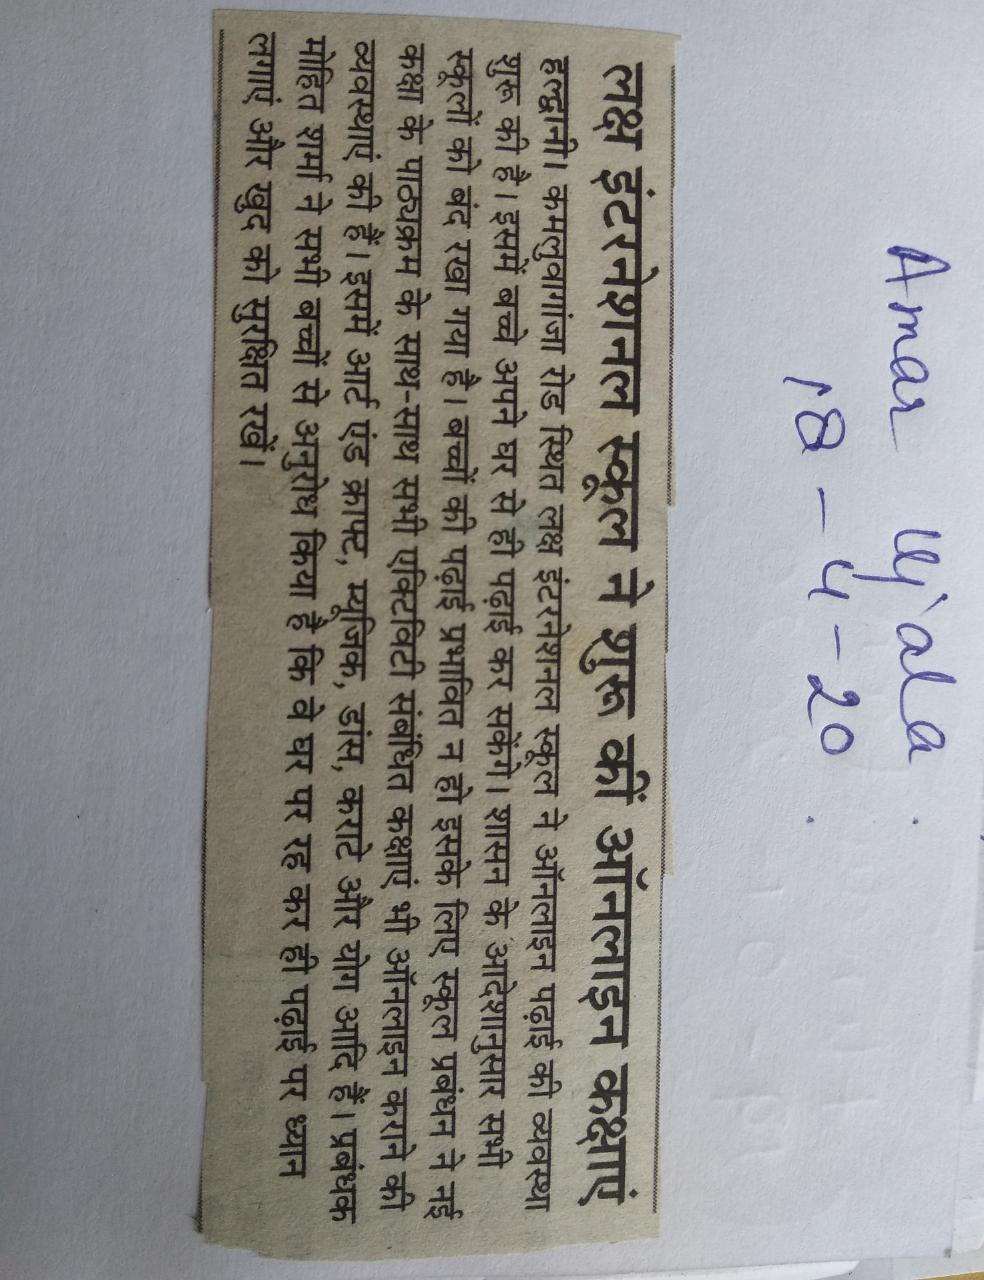 Amar Ujala.
18-4-20.
लक्ष इंटरनेशनल स्कूल ने शुरू कीं ऑनलाइन कक्षाएं
हल्द्वानी। कमलुवागांजा रोड स्थित लक्ष इंटरनेशनल स्कूल ने ऑनलाइन पढ़ाई की व्यवस्था
शुरू की है। इसमें बच्चे अपने घर से ही पढ़ाई कर सकेंगे। शासन के आदेशानुसार सभी
स्कूलों को बंद रखा गया है। बच्चों की पढ़ाई प्रभावित न हो इसके लिए स्कूल प्रबंधन ने नई
कक्षा के पाठ्यक्रम के साथ-साथ सभी एक्टिविटी संबंधित कक्षाएं भी ऑनलाइन कराने की
व्यवस्थाएं की हैं। इसमें आर्ट एंड क्राफ्ट, म्यूजिक, डांस, कराटे और योग आदि हैं। प्रबंधक
मोहित शर्मा ने सभी बच्चों से अनुरोध किया है कि वे घर पर रह कर ही पढ़ाई पर ध्यान
लगाएं और खुद को सुरक्षित रखें।